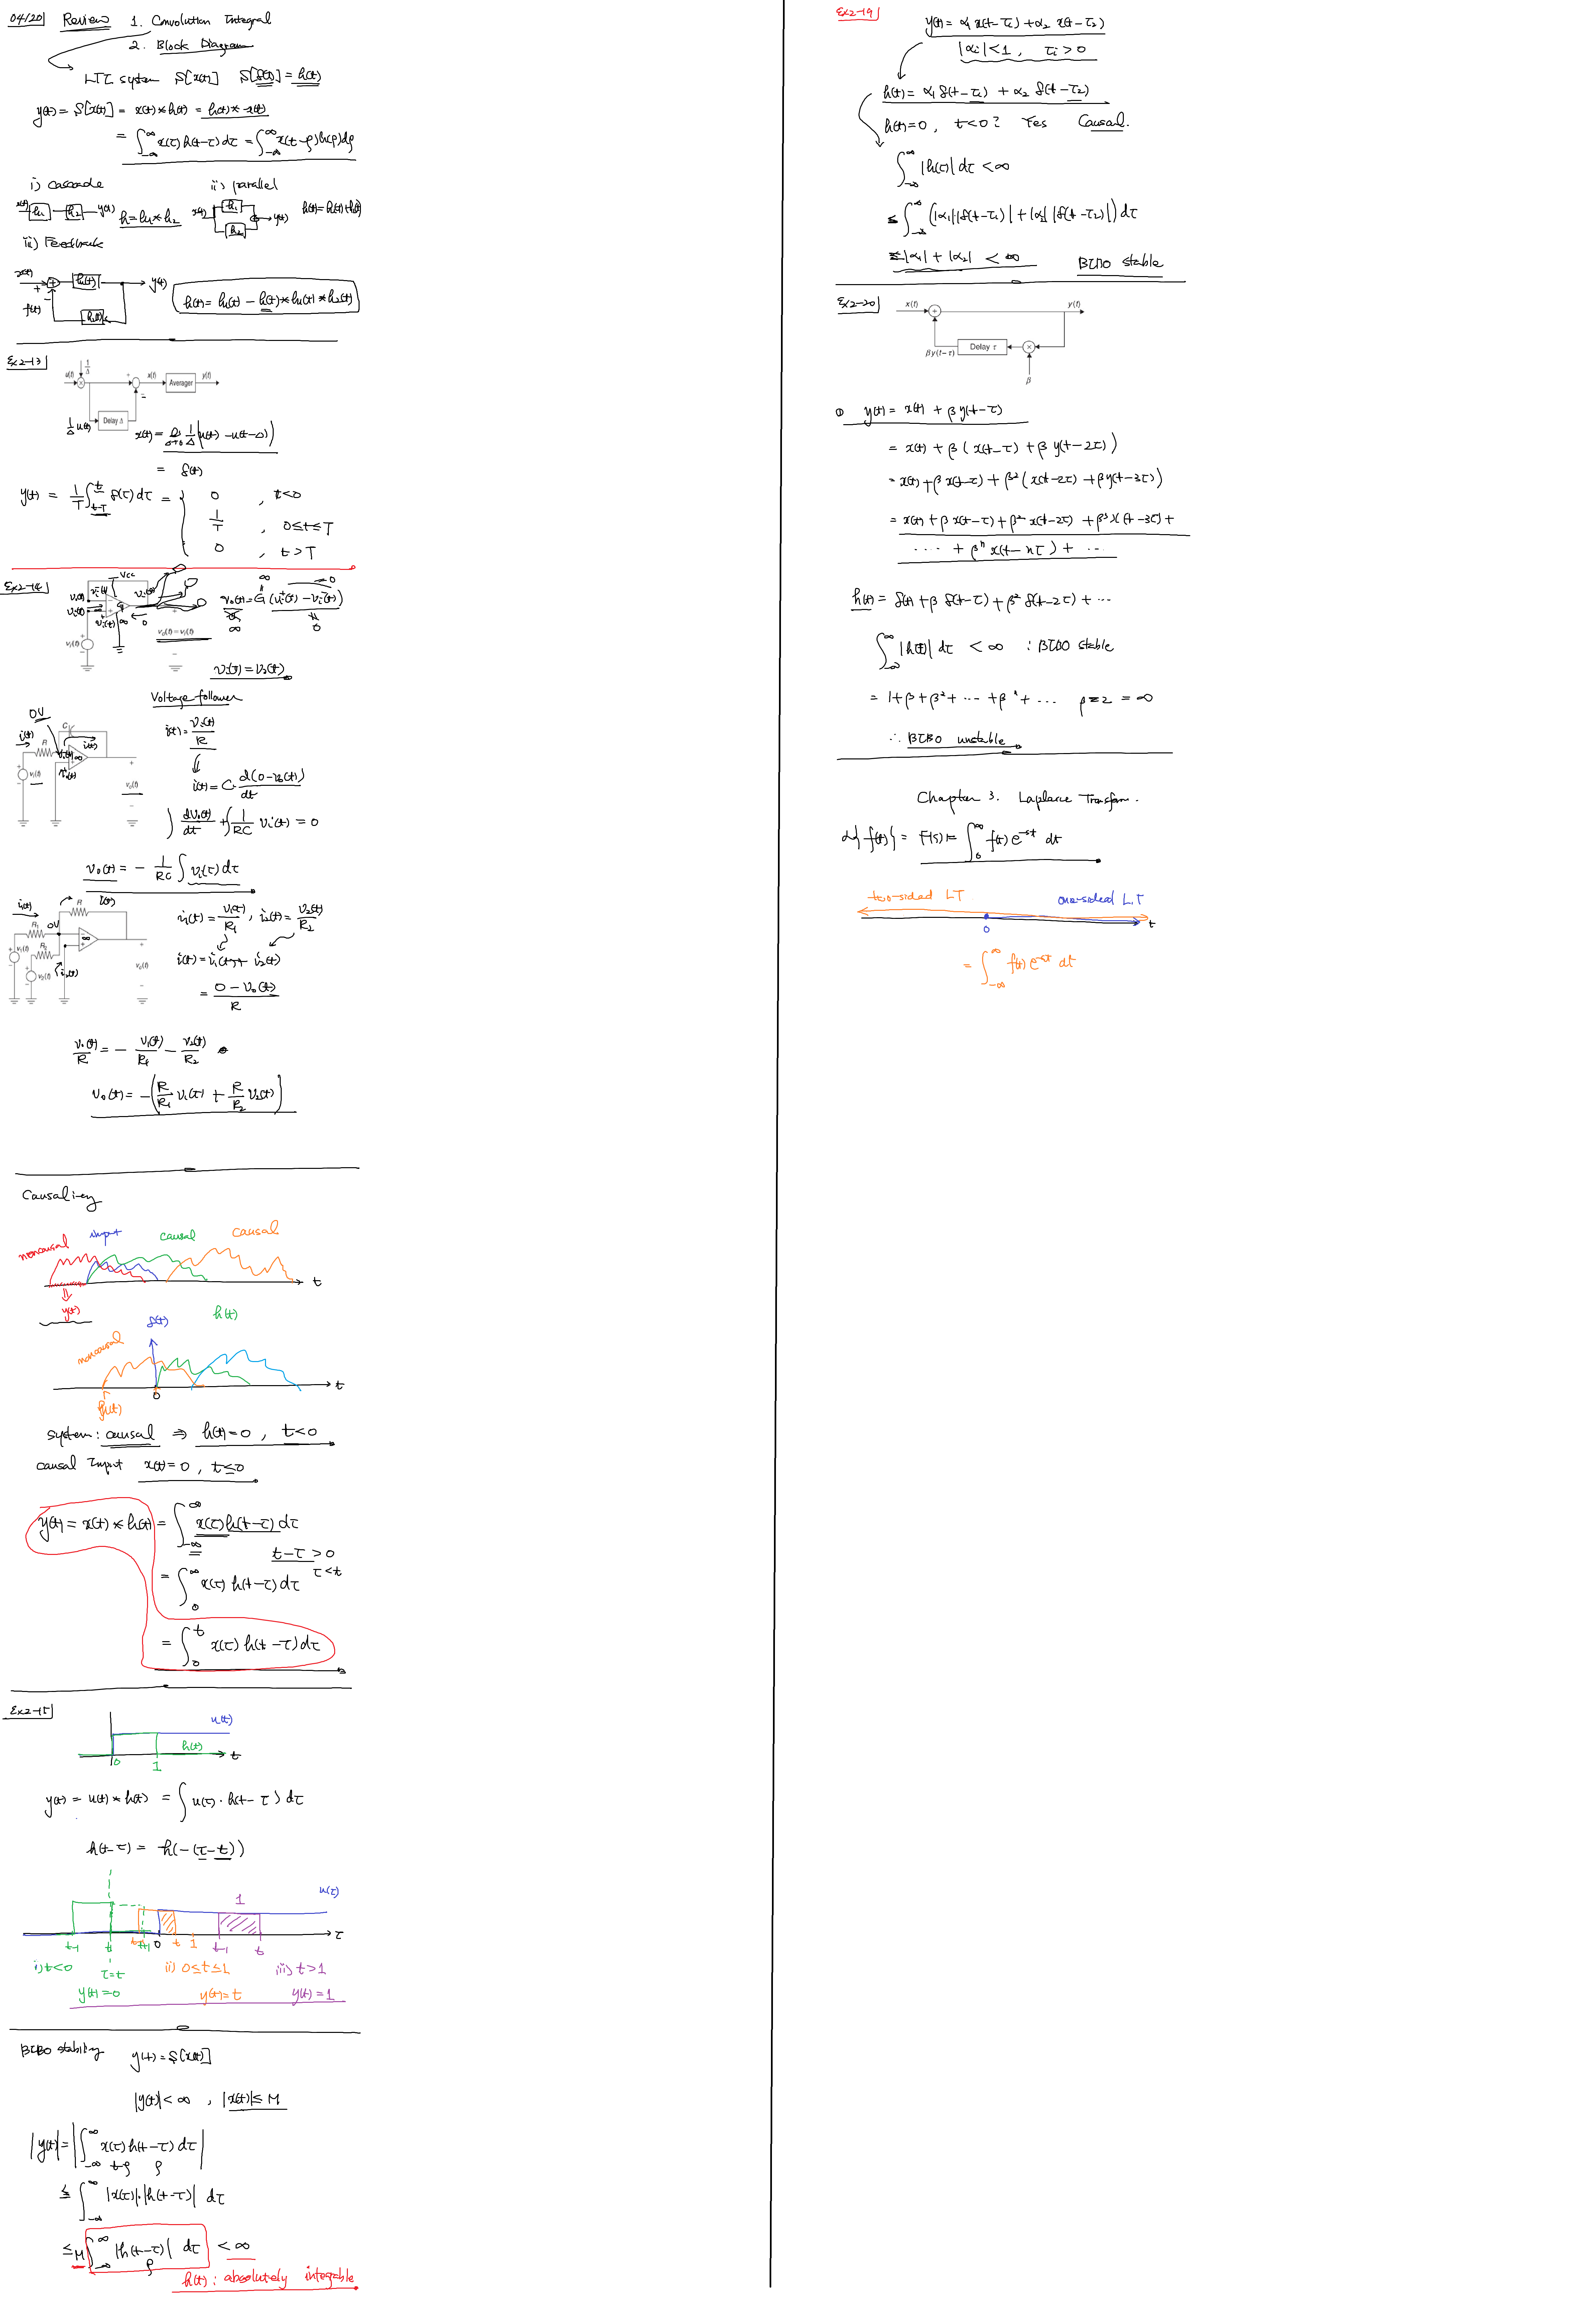 04/20 Review 1. Convolution Integral
2. Block Diagram
LTI system S[x(t)] S[δ(t)] = h(t)
y(t) = S[x(t)] = x(t) * h(t) = h(t) * x(t)
= ∫_{-∞}^{∞} x(τ) h(t-τ) dτ = ∫_{-∞}^{∞} x(t-ρ) h(ρ) dρ
i) cascade ii) parallel
x(t) h₁ h₂ y(t) h = h₁ * h₂ x(t) h₁ h₂ y(t) h(t) = h₁(t) + h₂(t)
iii) Feedback
x(t) + + − h₁(t) y(t)
f(t) h₂(t)
h(t) = h₁(t) − h(t) * h₁(t) * h₂(t)
Ex2-13
u(t) × 1/Δ + − x(t) Averager y(t)
1/Δ u(t) Delay Δ
x(t) = lim_{Δ→0} 1/Δ (u(t) − u(t-Δ))
= δ(t)
y(t) = 1/T ∫_{t-T}^{t} δ(τ) dτ = { 0 , t<0
1/T , 0≤t≤T
0 , t>T
Ex2-14
Vcc
v_o(t) = G (v_i⁺(t) − v_i⁻(t))
∞ 0
v_o(t) = v_i(t)
v_i(t) = v_o(t)
Voltage follower
0V i(t) R C i(t) v_i(t) v_o(t)
i(t) = v_i(t)/R
⇓
i(t) = C d(0 − v_o(t))/dt
∫ dv_o(t)/dt + ∫ 1/RC v_i(t) = 0
v_o(t) = − 1/RC ∫ v_i(τ) dτ
i₁(t) R i(t) R₁ 0V R₂ v₁(t) v₂(t) i₂(t) ∞ v_o(t)
i₁(t) = v₁(t)/R₁ , i₂(t) = v₂(t)/R₂
i(t) = i₁(t) + i₂(t)
= (0 − v_o(t))/R
v_o(t)/R = − v₁(t)/R₁ − v₂(t)/R₂
v_o(t) = −(R/R₁ v₁(t) + R/R₂ v₂(t))
Causality
noncausal input causal causal
t
⇓
y(t)
δ(t) h(t)
noncausal
0 t
h(t)
system : causal ⇒ h(t) = 0 , t<0
causal Input x(t) = 0 , t≤0
y(t) = x(t) * h(t) = ∫_{-∞}^{∞} x(τ) h(t-τ) dτ
t-τ > 0
τ < t
= ∫_{0}^{∞} x(τ) h(t-τ) dτ
= ∫_{0}^{t} x(τ) h(t-τ) dτ
Ex2-15
u(t)
h(t)
0 1 t
y(t) = u(t) * h(t) = ∫ u(τ) · h(t-τ) dτ
h(t-τ) = h(-(τ-t))
1 u(τ)
t-1 t t-1 t+1 0 t 1 t-1 t τ
i) t<0 τ=t ii) 0≤t≤1 iii) t>1
y(t)=0 y(t)=t y(t)=1
BIBO stability y(t) = S[x(t)]
|y(t)| < ∞ , |x(t)| ≤ M
|y(t)| = |∫_{-∞}^{∞} x(τ) h(t-τ) dτ|
t-ρ ρ
≤ ∫_{-∞}^{∞} |x(τ)|·|h(t-τ)| dτ
≤ M ∫_{-∞}^{∞} |h(t-τ)| dτ < ∞
ρ
h(t) : absolutely integrable
Ex2-19
y(t) = α₁ x(t-τ₁) + α₂ x(t-τ₂)
|αi| < 1 , τi > 0
h(t) = α₁ δ(t-τ₁) + α₂ δ(t-τ₂)
h(t)=0 , t<0? Yes Causal.
∫_{-∞}^{∞} |h(τ)| dτ < ∞
≤ ∫_{-∞}^{∞} (|α₁||δ(t-τ₁)| + |α₂||δ(t-τ₂)|) dτ
≤ |α₁| + |α₂| < ∞ BIBO stable
Ex2-20
x(t) + y(t)
βy(t−τ) Delay τ ×
β
y(t) = x(t) + β y(t-τ)
= x(t) + β (x(t-τ) + β y(t-2τ))
= x(t) + β x(t-τ) + β² (x(t-2τ) + β y(t-3τ))
= x(t) + β x(t-τ) + β² x(t-2τ) + β³ x(t-3τ) +
···· + βⁿ x(t-nτ) + ···
h(t) = δ(t) + β δ(t-τ) + β² δ(t-2τ) + ···
∫_{-∞}^{∞} |h(t)| dτ < ∞ : BIBO stable
= 1 + β + β² + ··· + βⁿ + ··· β=2 = ∞
∴ BIBO unstable
Chapter 3. Laplace Transform.
ℒ{f(t)} = F(s) = ∫_{0}^{∞} f(t) e^{-st} dt
two-sided LT one-sided LT
0 t
= ∫_{-∞}^{∞} f(t) e^{-st} dt